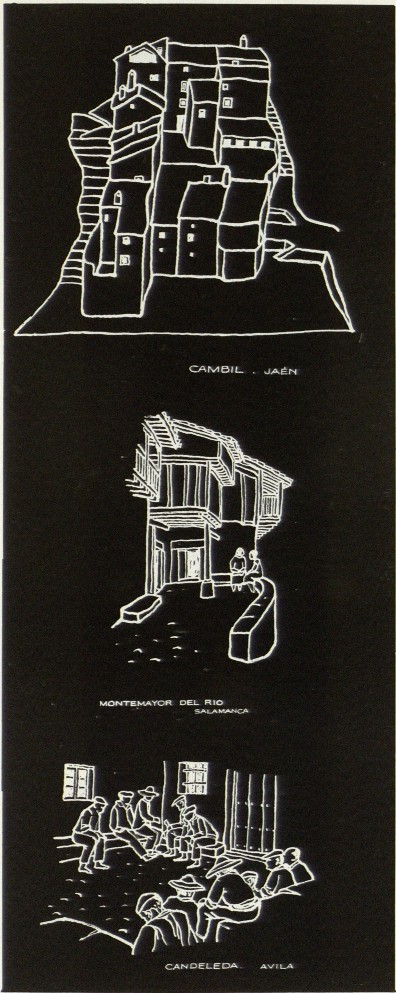 CAMBIL . JAÉN
MONTEMAYOR DEL RIO
SALAMANCA
CANDELEDA. AVILA